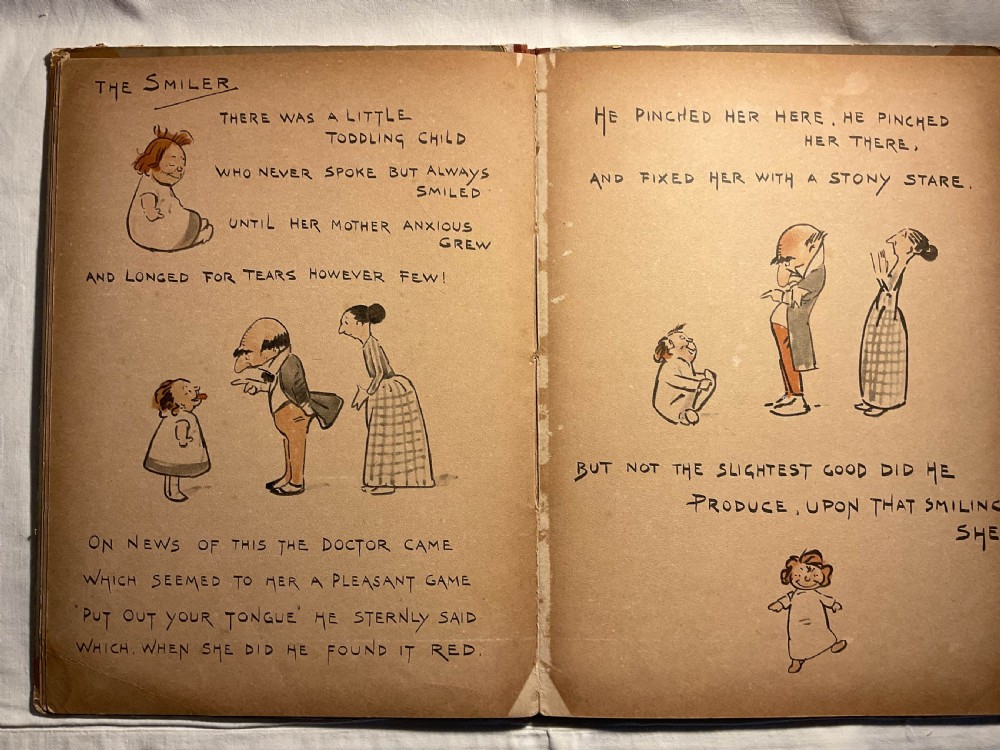 THE SMILER
THERE WAS A LITTLE
TODDLING CHILD
WHO NEVER SPOKE BUT ALWAYS
SMILED
UNTIL HER MOTHER ANXIOUS
GREW
AND LONGED FOR TEARS HOWEVER FEW!
ON NEWS OF THIS THE DOCTOR CAME
WHICH SEEMED TO HER A PLEASANT GAME
'PUT OUT YOUR TONGUE' HE STERNLY SAID
WHICH, WHEN SHE DID HE FOUND IT RED.
HE PINCHED HER HERE, HE PINCHED
HER THERE,
AND FIXED HER WITH A STONY STARE.
BUT NOT THE SLIGHTEST GOOD DID HE
PRODUCE, UPON THAT SMILING
SHE